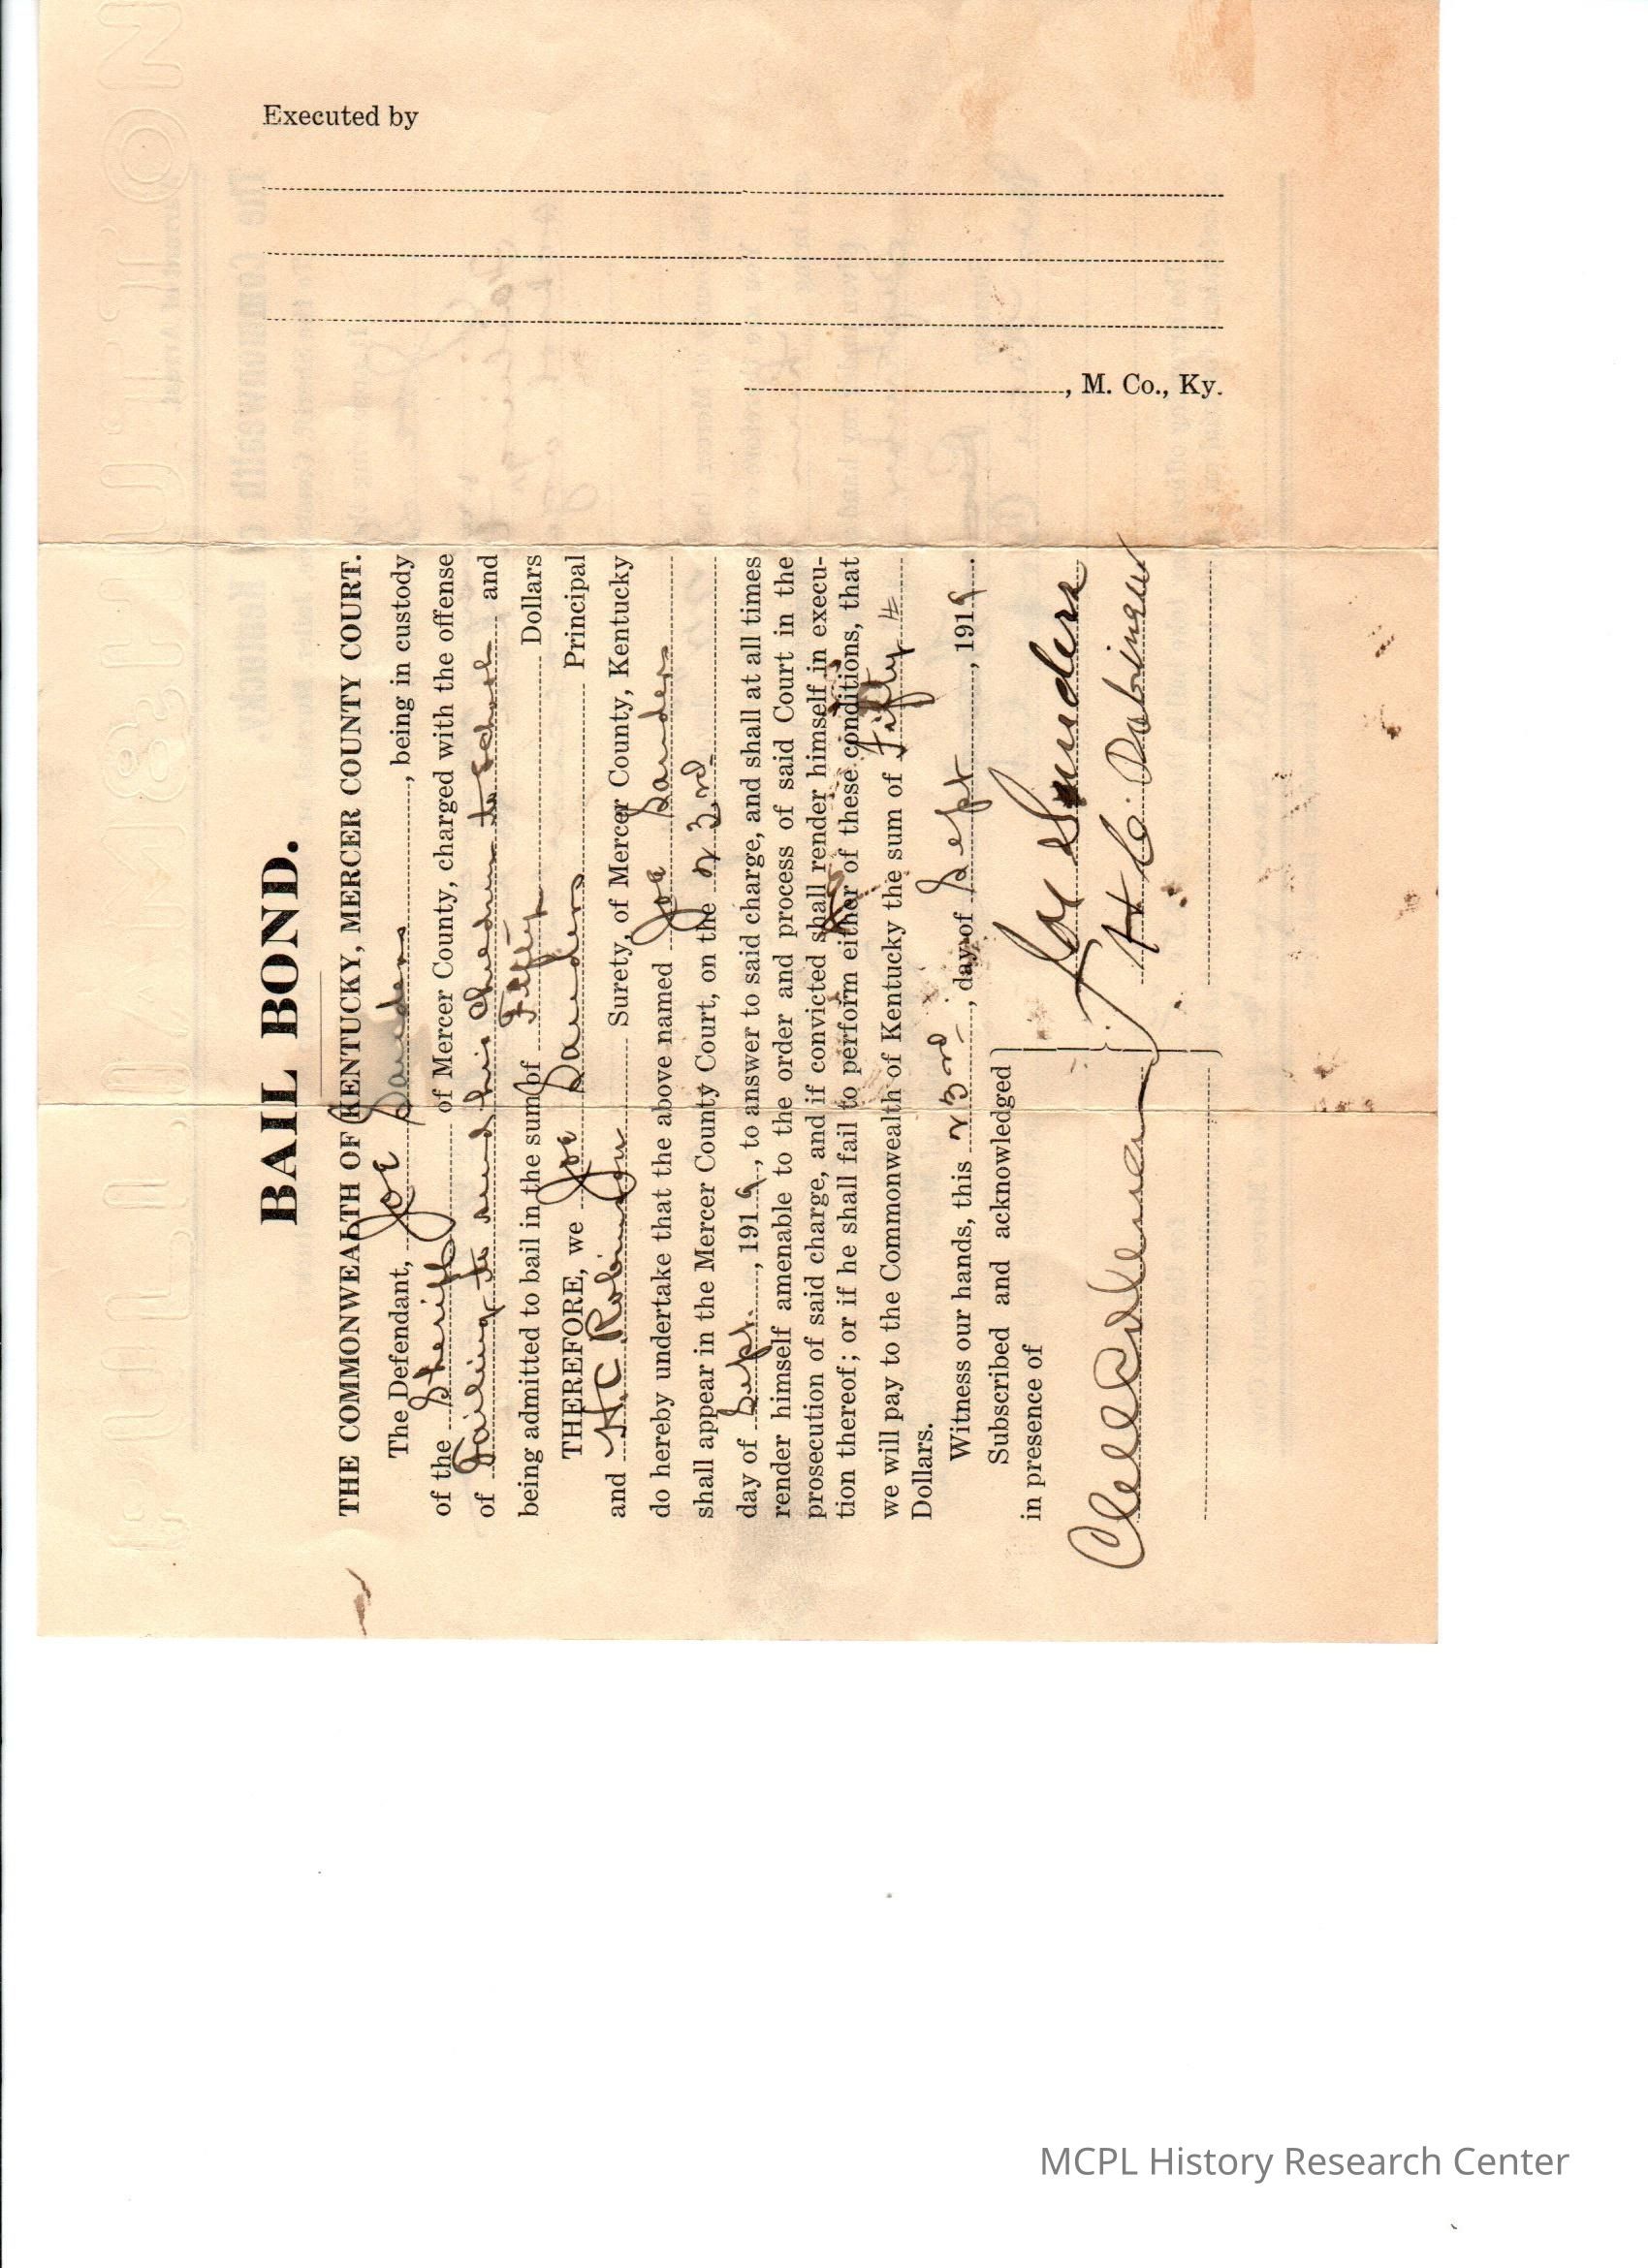 Executed by
, M. Co., Ky.
BAIL BOND.
THE COMMONWEALTH OF KENTUCKY, MERCER COUNTY COURT.
The Defendant, Joe Sanders, being in custody
of the Sheriff of Mercer County, charged with the offense
of Failing to send his Chedurn to School and
being admitted to bail in the sum of Fifty Dollars
THEREFORE, we Joe Sanders Principal
and H C Robinson Surety, of Mercer County, Kentucky
do hereby undertake that the above named Joe Sanders
shall appear in the Mercer County Court, on the 23rd
day of Sept., 1919, to answer to said charge, and shall at all times
render himself amenable to the order and process of said Court in the
prosecution of said charge, and if convicted shall render himself in execu-
tion thereof; or if he shall fail to perform either of these conditions, that
we will pay to the Commonwealth of Kentucky the sum of Fifty
Dollars.
Witness our hands, this 23rd, day of Sept, 1919.
Subscribed and acknowledged
in presence of
Joe Sanders
H C Robinson
MCPL History Research Center